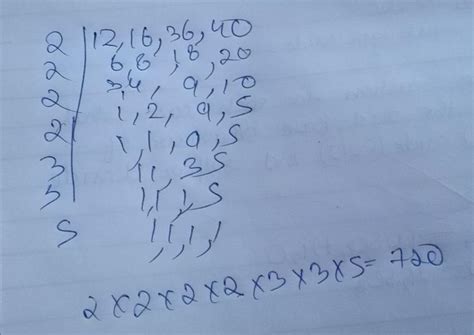 2 | 12, 16, 36, 40
2 | 6, 8, 18, 20
2 | 3, 4, 9, 10
2 | 1, 2, 9, 5
3 | 1, 1, 9, 5
3 | 1, 1, 3 5
5 | 1, 1, 1, 5
1, 1, 1, 1
2 x 2 x 2 x 2 x 3 x 3 x 5 = 720